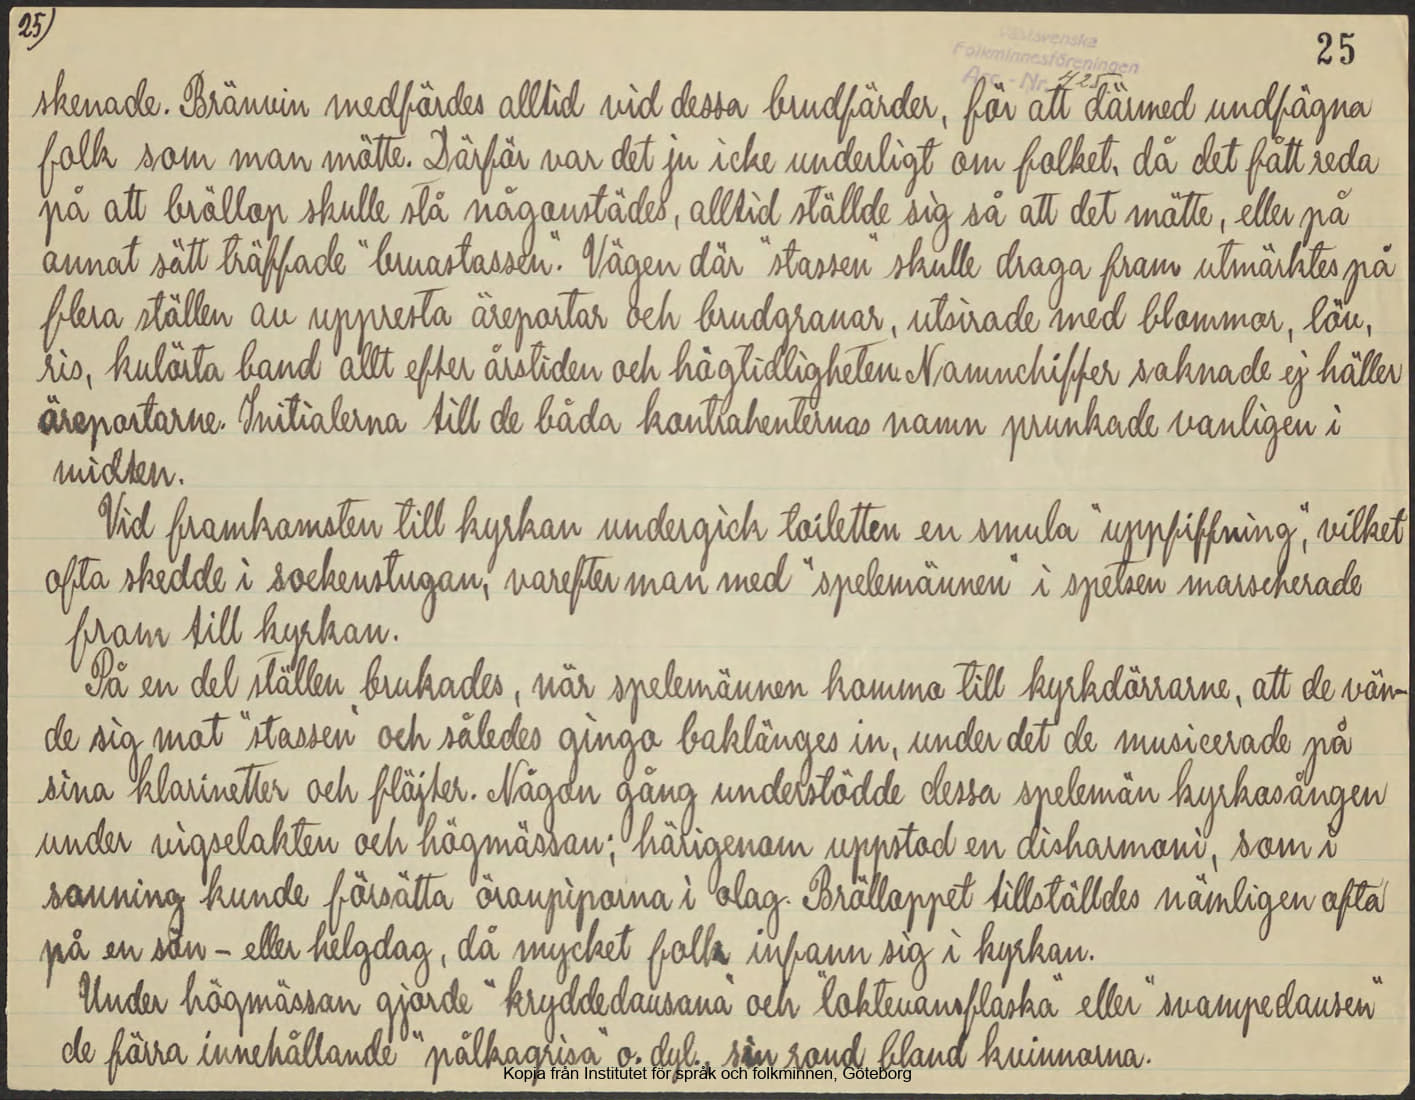 25)
25
Västsvenska
Folkminnesföreningen
Acc.-Nr. 425.
skenade. Bränvin medfördes alltid vid dessa brudfärder, för att därmed undfägna
folk som man mötte. Därför var det ju icke underligt om folket, då det fått reda
på att bröllop skulle stå någonstädes, alltid ställde sig så att det mötte, eller på
annat sätt träffade "bruastassen". Vägen där "stassen" skulle draga fram utmärktes på
flera ställen av uppresta äreportar och brudgranar, utsirade med blommor, löv,
ris, kulörta band allt efter årstiden och högtidligheten. Namnchiffer saknade ej häller
äreportarne. Initialerna till de båda kontrahenternas namn prunkade vanligen i
midten.
Vid framkomsten till kyrkan undergick toiletten en smula "uppfiffning", vilket
ofta skedde i sockenstugan, varefter man med "spelemännen" i spetsen marscherade
fram till kyrkan.
På en del ställen brukades, när spelemännen kommo till kyrkdörrarne, att de vän-
de sig mot "stassen" och således gingo baklänges in, under det de musicerade på
sina klarinetter och flöjter. Någon gång understödde dessa spelemän kyrkosången
under vigselakten och högmässan; härigenom uppstod en disharmoni, som i
sanning kunde försätta öronpiporna i olag. Brölloppet tillställdes nämligen ofta
på en sön- eller helgdag, då mycket folk infann sig i kyrkan.
Under högmässan gjorde "kryddedausana" och "loktevansflaska" eller "svampedausen"
de förra innehållande "pålkagrisa" o. dyl., sin rond bland kvinnorna.
Kopia från Institutet för språk och folkminnen, Göteborg